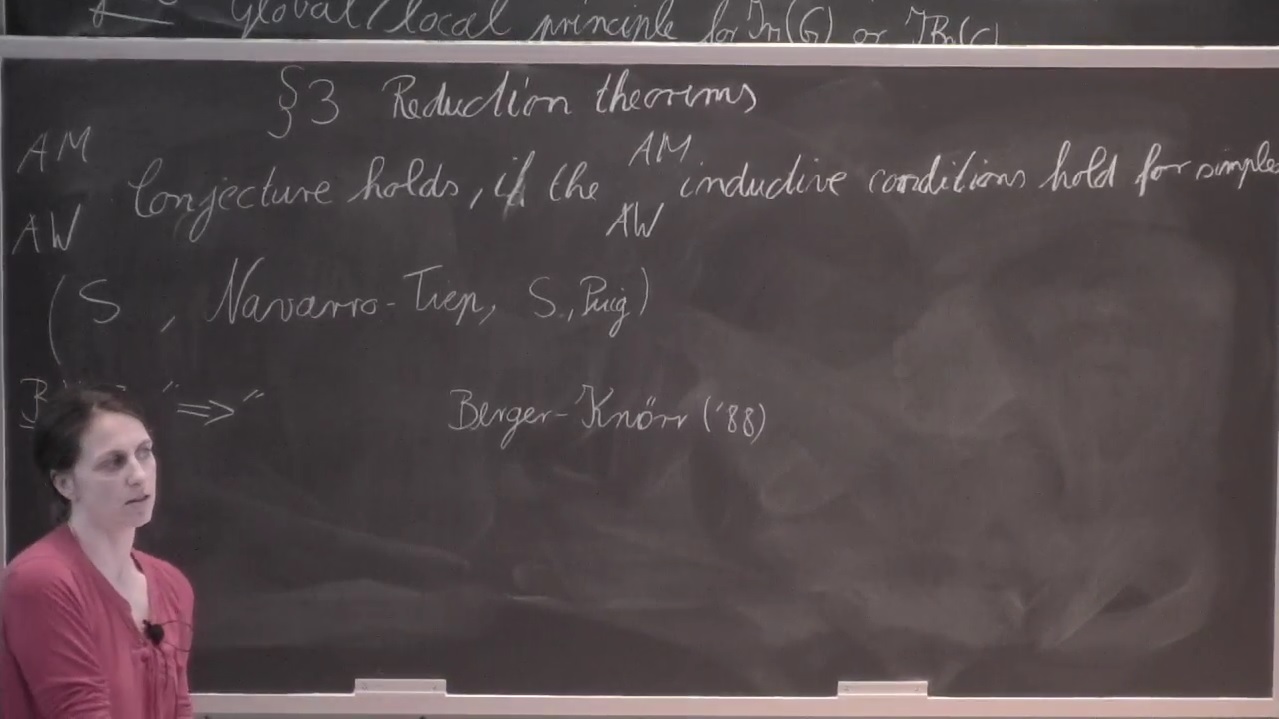 Global/local principle for Irr(G) or IBr(G)
§3 Reduction theorems
AM AM
Conjecture holds, if the inductive conditions hold for simple
AW AW
(S , Navarro-Tiep, S., Puig)
"⇒" Berger-Knörr ('88)